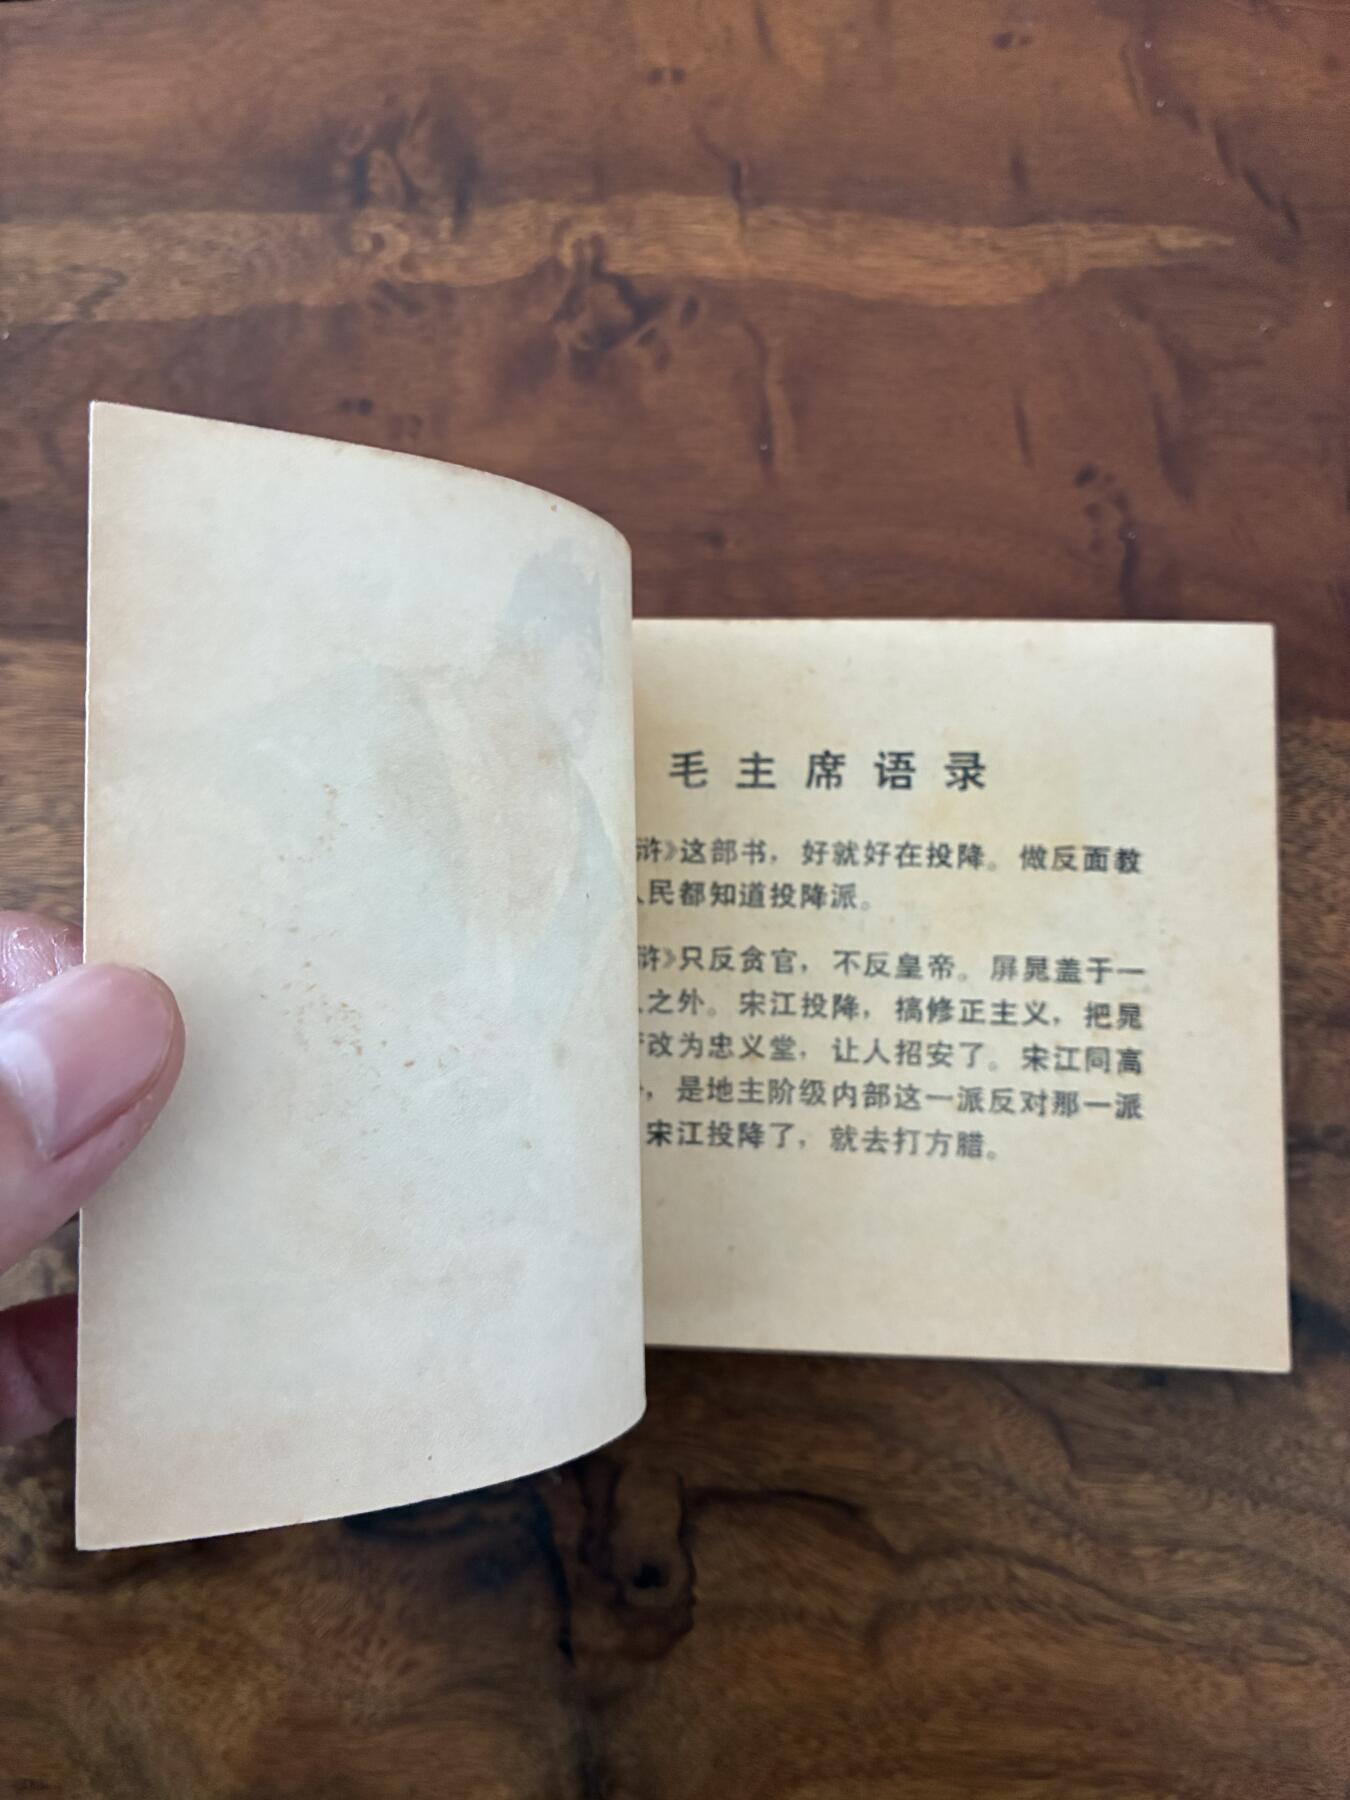 毛主席语录
浒》这部书，好就好在投降。做反面教
民都知道投降派。
浒》只反贪官，不反皇帝。屏晁盖于一
之外。宋江投降，搞修正主义，把晁
改为忠义堂，让人招安了。宋江同高
，是地主阶级内部这一派反对那一派
宋江投降了，就去打方腊。